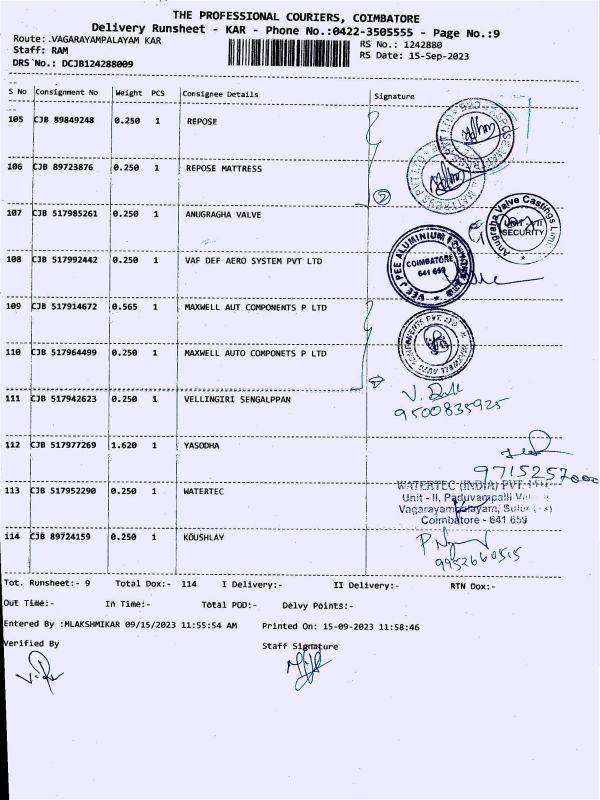 THE PROFESSIONAL COURIERS, COIMBATORE
Delivery Runsheet - KAR - Phone No.:0422-3505555 - Page No.:9
Route:.VAGARAYAMPALAYAM KAR RS No.: 1242880
Staff: RAM RS Date: 15-Sep-2023
DRS No.: DCJB124288009
S No Consignment No Weight PCS Consignee Details Signature
105 CJB 89849248 0.250 1 REPOSE
106 CJB 89723876 0.250 1 REPOSE MATTRESS
2
107 CJB 517985261 0.250 1 ANUGRAGHA VALVE
Anugraha Valve Castings Limi
UNIT-VII
SECURITY
108 CJB 517992442 0.250 1 VAF DEF AERO SYSTEM PVT LTD
VEE JPEE ALUMINIUM
COIMBATORE
641 659
109 CJB 517914672 0.565 1 MAXWELL AUT COMPONENTS P LTD
110 CJB 517964499 0.250 1 MAXWELL AUTO COMPONETS P LTD
111 CJB 517942623 0.250 1 VELLINGIRI SENGALPPAN
9500835925
112 CJB 517977269 1.620 1 YASODHA
9715257000
113 CJB 517952290 0.250 1 WATERTEC
WATERTEC (INDIA) PVT. LTD.
Unit - II, Paduvampalli
Vagarayampalayam, Sulur
Coimbatore - 641 659
114 CJB 89724159 0.250 1 KOUSHLAY
9952660515
Tot. Runsheet:- 9 Total Dox:- 114 I Delivery:- II Delivery:- RTN Dox:-
Out Time:- In Time:- Total POD:- Delvy Points:-
Entered By :MLAKSHMIKAR 09/15/2023 11:55:54 AM Printed On: 15-09-2023 11:58:46
Verified By Staff Signature